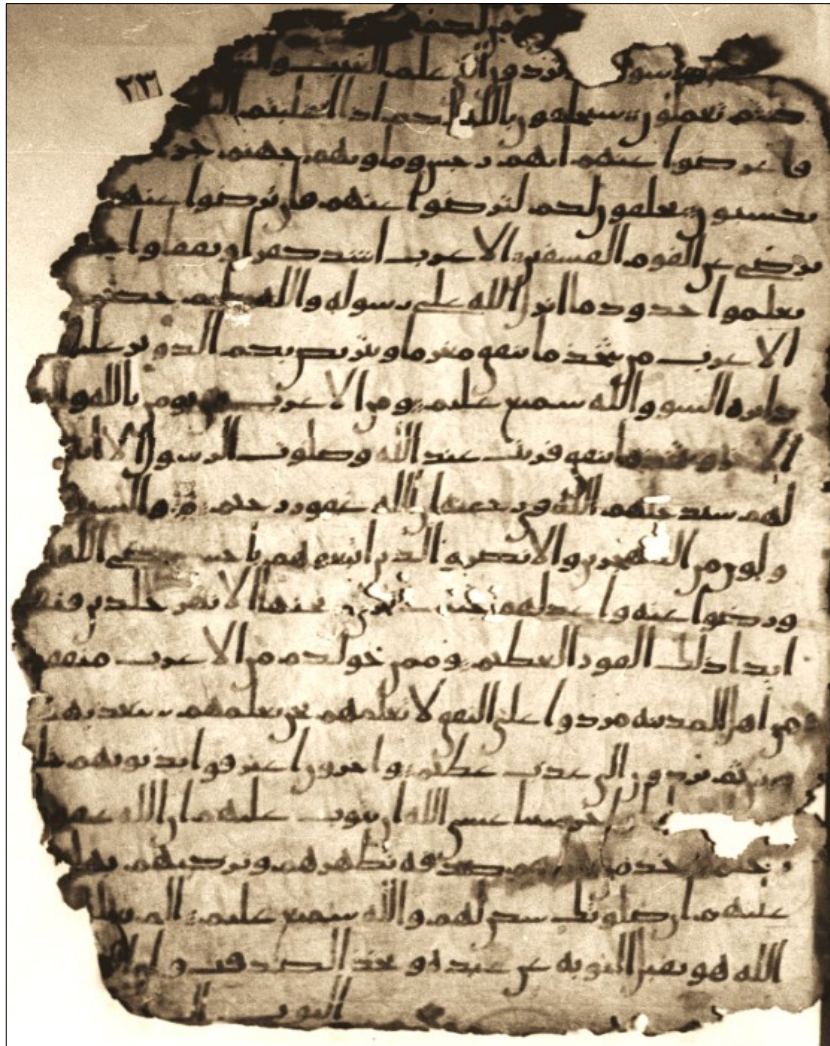 ٢٣
تردون الى علم الغيب
كنتم تعملون سيحلفون بالله لكم اذا انقلبتم
فاعرضوا عنهم انهم رجس وماويهم جهنم
يكسبون يحلفون لكم لترضوا عنهم فان ترضوا عنهم
يرضى عن القوم الفسقين الاعرب اشد كفرا ونفقا
يعلموا حدود ما انزل الله على رسوله والله عليم حكيم
الاعرب من يتخذ ما ينفق مغرما ويتربص بكم الدوير
دايره السو والله سميع عليم ومن الاعرب من يومن بالله
الاخر ويتخذ ما ينفق قربت عند الله وصلوت الرسول الا
لهم سيدخلهم الله في رحمته ان الله غفور رحيم
ولون من المهجرين والانصر والذين اتبعوهم باحسن رضي الله
ورضوا عنه واعد لهم جنت تجري تحتها الانهر خلدين فيها
ابدا ذلك الفوز العظيم وممن حولكم من الاعرب
ومن اهل المدينه مردوا على النفق لا تعلمهم نحن نعلمهم سنعذبهم
ثم يردون الى عذب عظيم واخرون اعترفوا بذنوبهم
سيا عسى الله ان يتوب عليهم ان الله
رحيم خذ من صدقه تطهرهم وتزكيهم بها
عليهم ان صلوتك سكن لهم والله سميع عليم الم
الله هو يقبل التوبه عن عبده وياخذ الصدقت
التوب